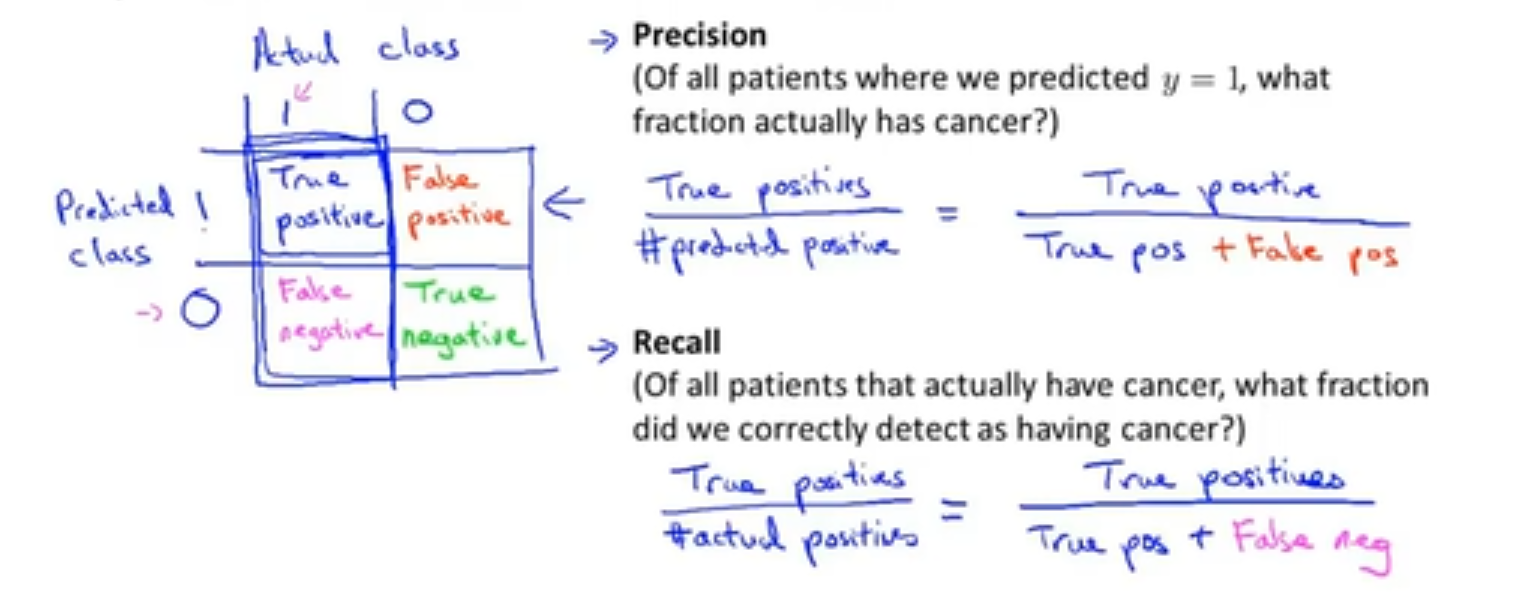 Actual class
1 0
Predicted 1
class
True
positive
False
positive
0
False
negative
True
negative
→ Precision
(Of all patients where we predicted y = 1, what
fraction actually has cancer?)
True positives
#predicted positive
=
True positive
True pos + False pos
→ Recall
(Of all patients that actually have cancer, what fraction
did we correctly detect as having cancer?)
True positives
#actual positives
=
True positives
True pos + False neg